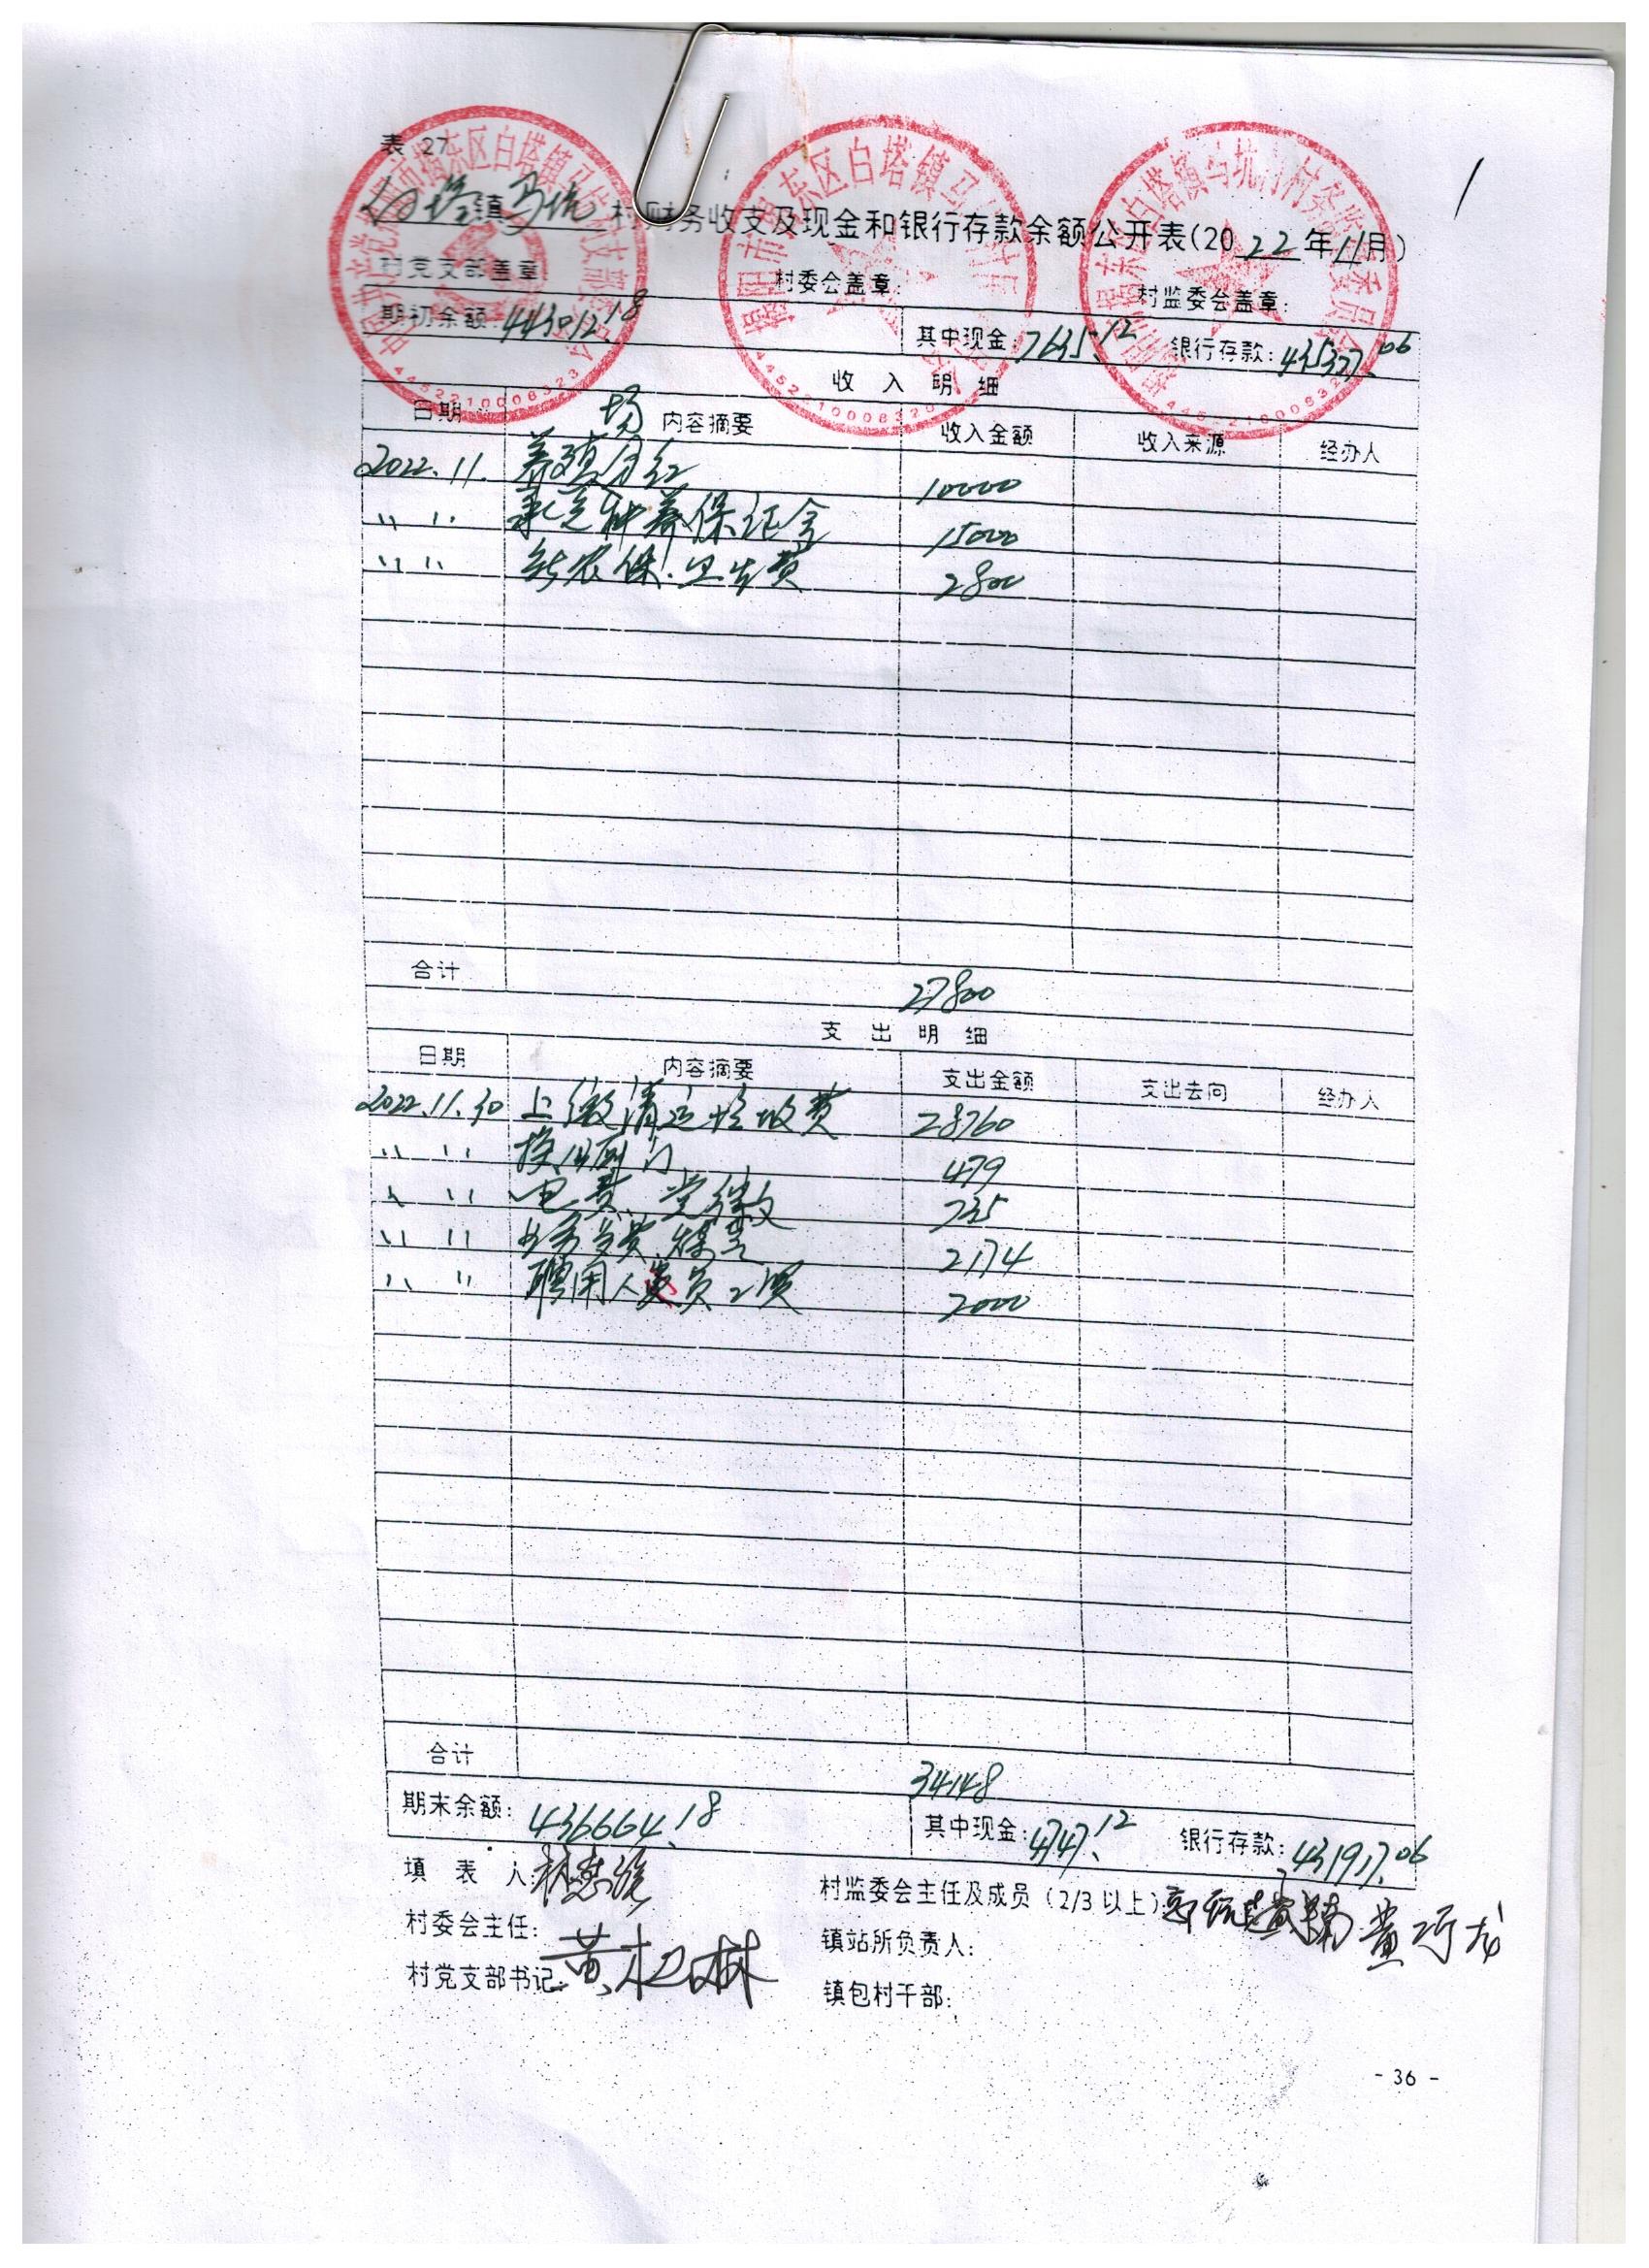 表 27
白塔镇马坑村财务收支及现金和银行存款余额公开表(2022年11月)
村党支部盖章 村委会盖章: 村监委会盖章:
期初余额:443012.18 其中现金:7635.12 银行存款:435377.06
收 入 明 细
日期 内容摘要 收入金额 收入来源 经办人
场
2022.11. 养殖分红 10000
〃 〃 承包种养保证金 15000
〃 〃 农保.卫生费 2800
合计 27800
支 出 明 细
日期 内容摘要 支出金额 支出去向 经办人
2022.11.30 上缴清运垃圾费 28760
〃 〃 换公厕门 479
〃 〃 电费、党徽 735
〃 〃 2174
〃 〃 聘用人员工资 2000
合计 34148
期末余额:436664.18 其中现金:4747.12 银行存款:431917.06
填 表 人: 村监委会主任及成员(2/3以上):
村委会主任: 镇站所负责人:
村党支部书记: 黄 镇包村干部:
- 36 -